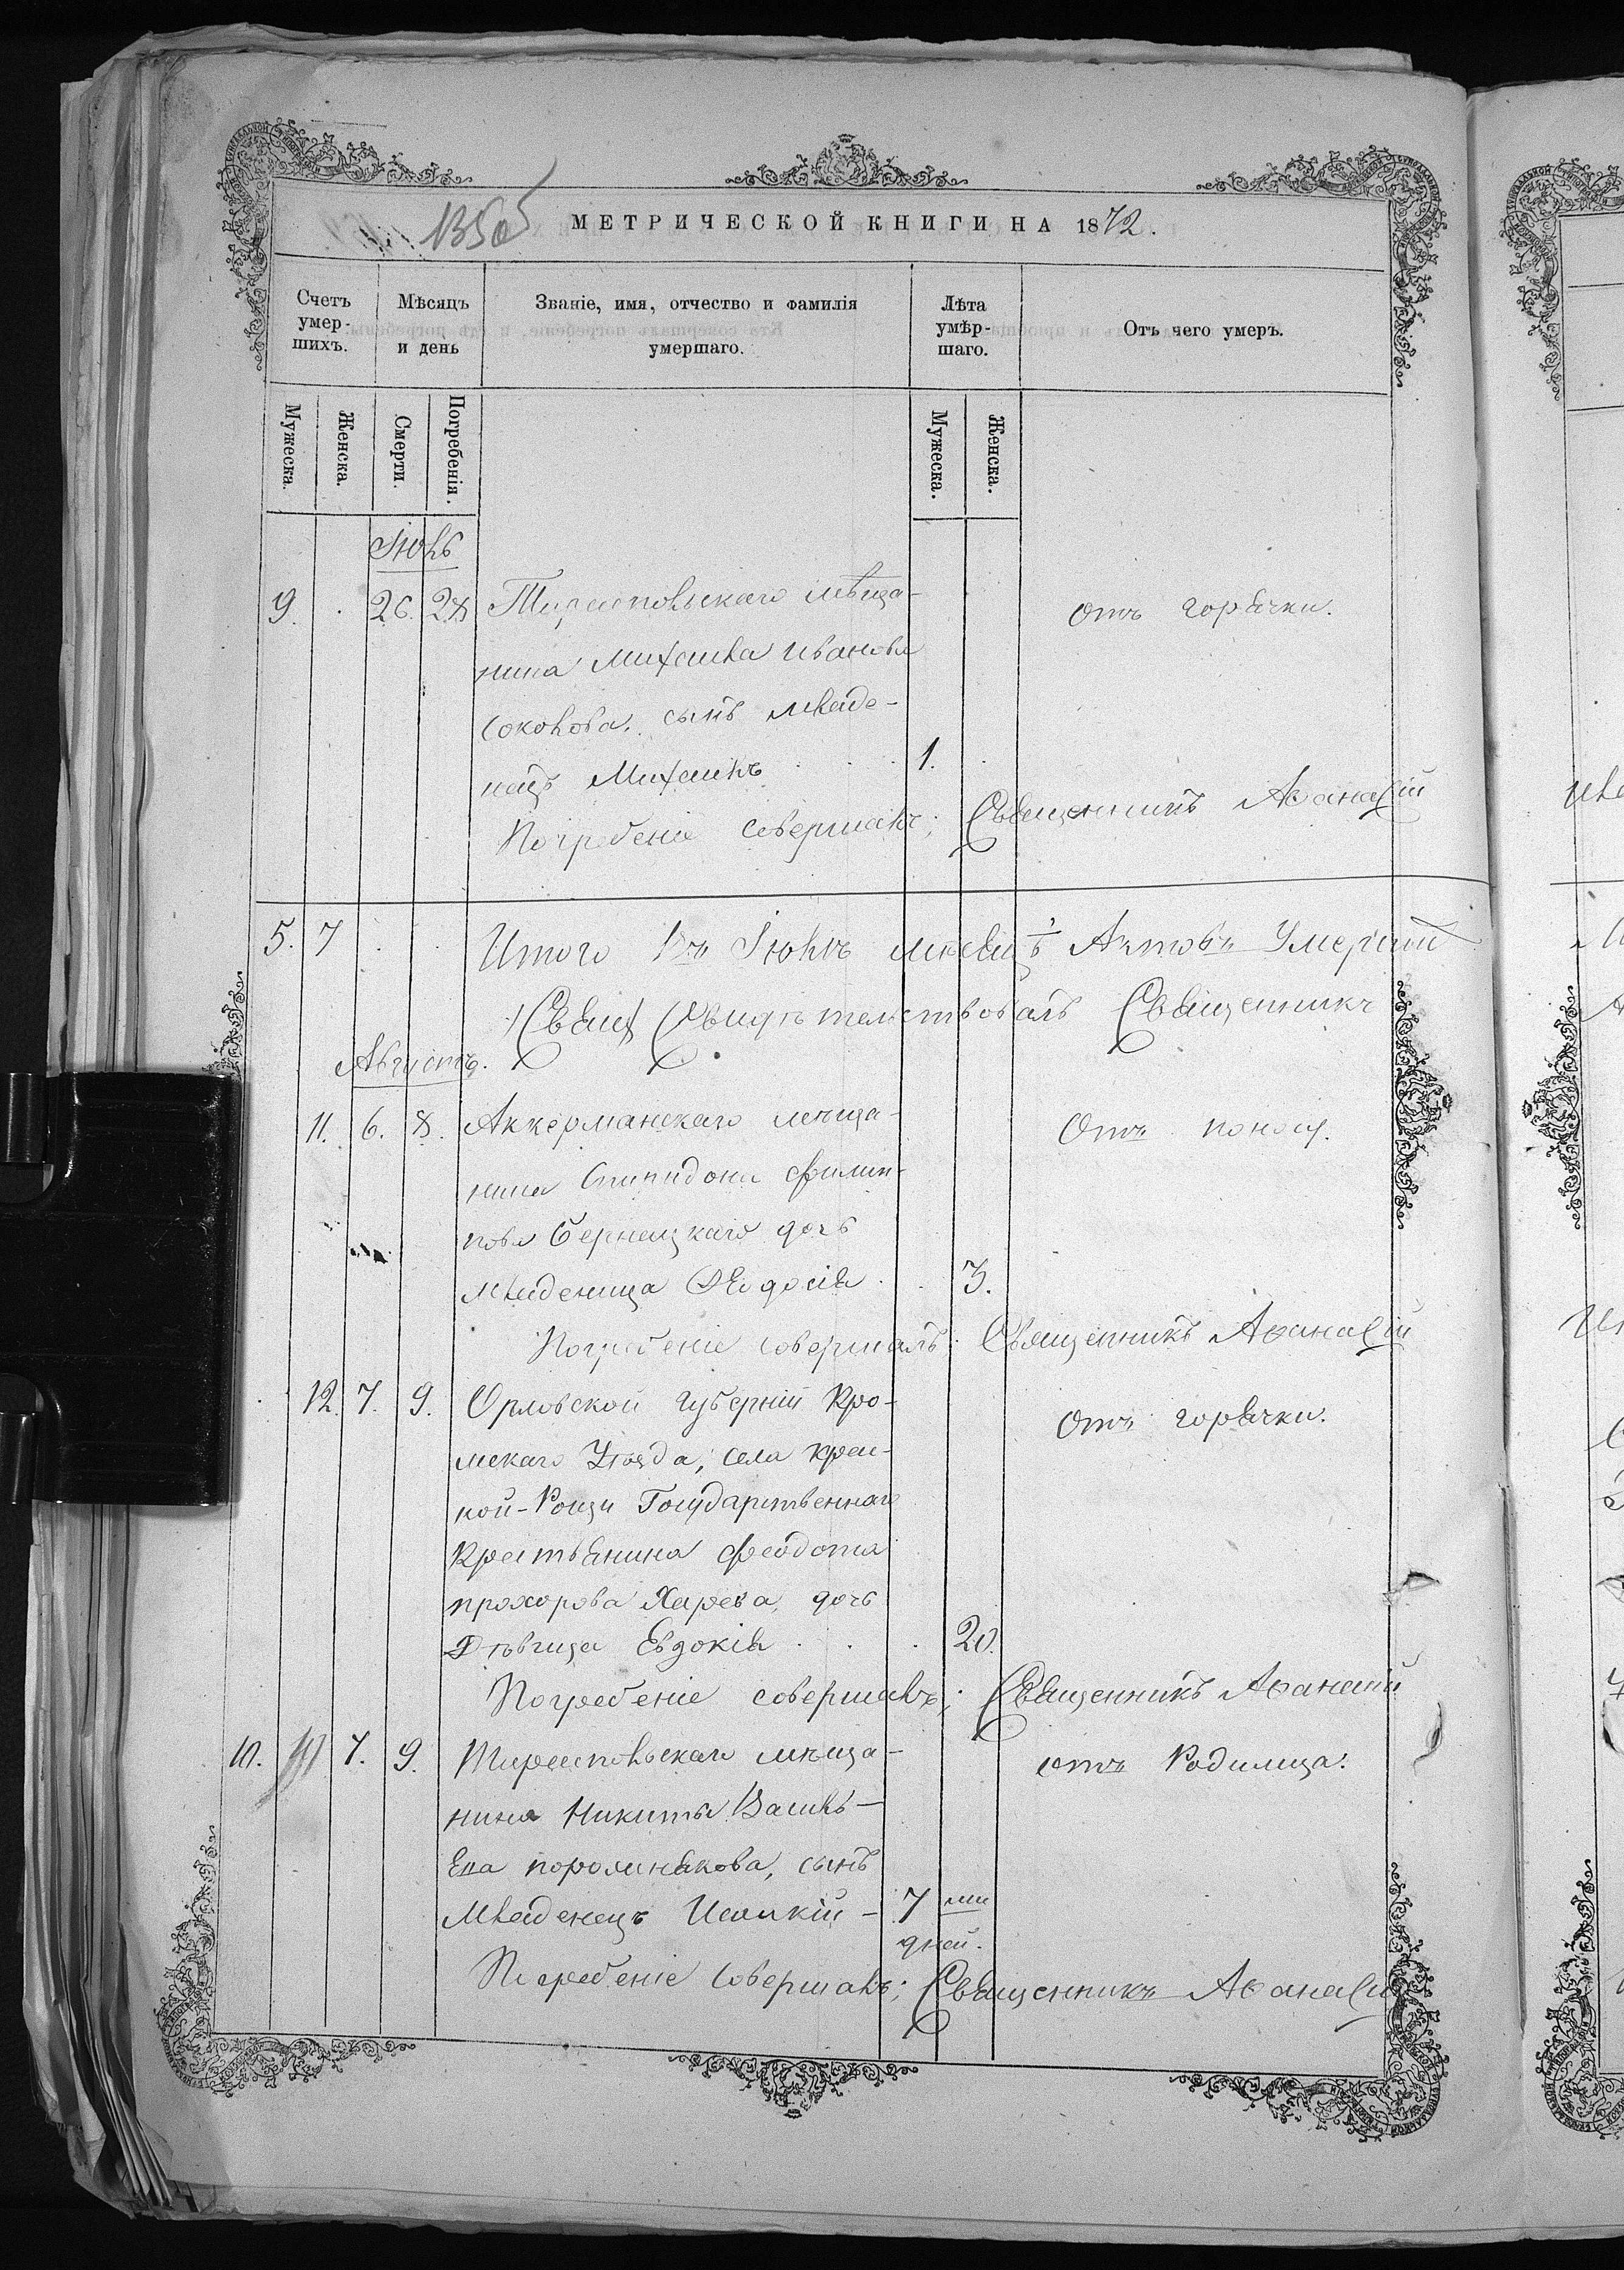 МЕТРИЧЕСКОЙ КНИГИ НА 1872.
Счетъ умер-шихъ. Мѣсяцъ и день Званіе, имя, отчество и фамилія умершаго. Лѣта умѣр-шаго. Отъ чего умеръ.
Мужеска. Женска. Смерти. Погребенія. Мужеска. Женска.
Іюль
9. 26. 28 Тираспольскаго мѣща- отъ горячки.
нина Михаила Иванова
Соколова, сынъ младе-
нецъ Михаилъ 1.
Погребеніе совершалъ; Священникъ Аѳанасій
5. 7 Итого въ Іюлѣ мѣсяцѣ Актовъ
Свидѣтельствовалъ Священникъ
Августъ.
11. 6. 8. Аккерманскаго мѣща- Отъ поносу.
нина Спиридона Филип-
пова Бернацкаго дочь
младеница Ѳеодосія 3.
Погребеніе совершалъ: Священникъ Аѳанасій
12. 7. 9. Орловской губерніи Кро- Отъ горячки.
мскаго Уѣзда, села
кой-Рощи Государственнаго
Крестьянина Феодота
прохорова Харева, дочь
Дѣвица Евдокія 20.
Погребеніе совершалъ; Священникъ Аѳанасій
10. 7. 9. Тираспольскаго мѣща- отъ Родимца.
нина Никиты Василь-
Ева сынъ
Младенецъ 7 ми
дней.
Погребеніе Совершалъ; Священникъ Аѳанасій